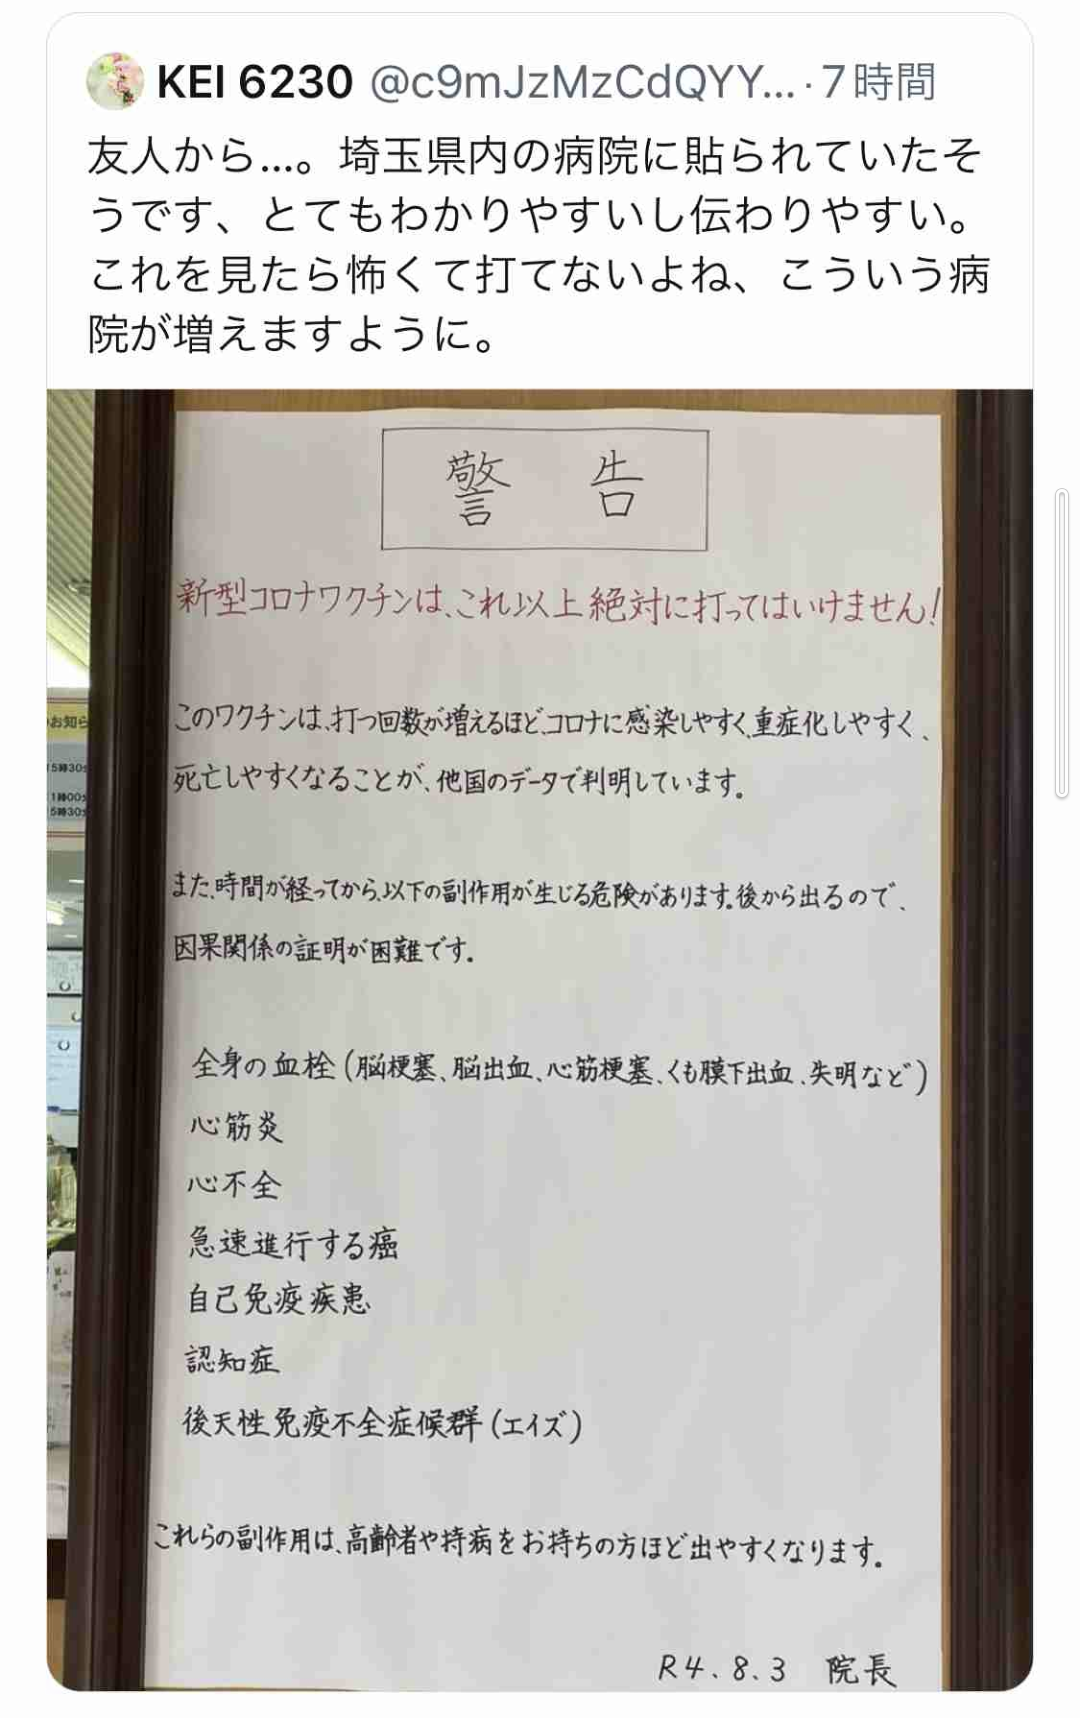 KEI 6230 @c9mJzMzCdQYY... · 7時間
友人から...。埼玉県内の病院に貼られていたそ
うです、とてもわかりやすいし伝わりやすい。
これを見たら怖くて打てないよね、こういう病
院が増えますように。
警 告
新型コロナワクチンは、これ以上絶対に打ってはいけません!
このワクチンは、打つ回数が増えるほど、コロナに感染しやすく、重症化しやすく、
死亡しやすくなることが、他国のデータで判明しています。
また、時間が経ってから、以下の副作用が生じる危険があります。後から出るので、
因果関係の証明が困難です。
全身の血栓(脳梗塞、脳出血、心筋梗塞、くも膜下出血、失明など)
心筋炎
心不全
急速進行する癌
自己免疫疾患
認知症
後天性免疫不全症候群(エイズ)
これらの副作用は、高齢者や持病をお持ちの方ほど出やすくなります。
R4.8.3 院長
お知ら
5時30
1時00
5時30